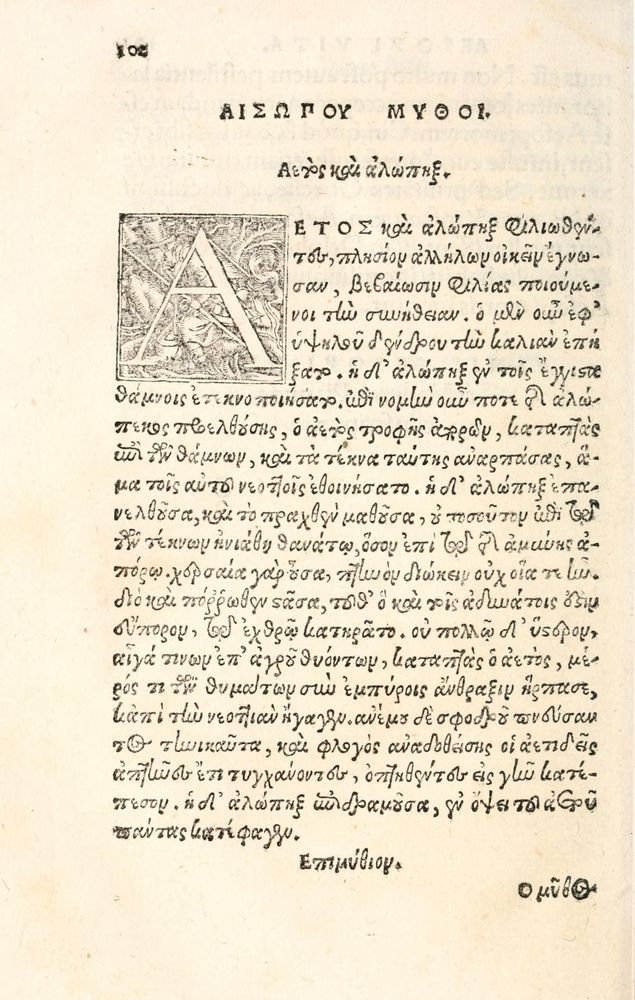 102
ΑΙΣΩΠΟΥ ΜΥΘΟΙ.
Αετὸς καὶ ἀλώπηξ.
ΑΕΤΟΣ καὶ ἀλώπηξ φιλιωθέν-
τες, πλησίον ἀλλήλων οἰκεῖν ἔγνω-
σαν, βεβαίωσιν φιλίας ποιούμε-
νοι τὴν συνήθειαν. ὁ μὲν οὖν ἐφ'
ὑψηλοῦ δένδρου τὴν καλιὰν ἐπή
ξατο. ἡ δ' ἀλώπηξ ἐν τοῖς ἔγγιστα
θάμνοις ἐτεκνοποιήσατο. ἐπὶ νομὴν οὖν ποτε τῆς ἀλώ-
πεκος προελθούσης, ὁ ἀετὸς τροφῆς ἀπορῶν, καταπτὰς
ἐπὶ τῶν θάμνων, καὶ τὰ τέκνα ταύτης ἀναρπάσας, ἅ-
μα τοῖς αὑτοῦ νεοττοῖς ἐθοινήσατο. ἡ δ' ἀλώπηξ ἐπα-
νελθοῦσα, καὶ τὸ πραχθὲν μαθοῦσα, οὐ τοσοῦτον ἐπὶ τῷ
τῶν τέκνων ἠνιάθη θανάτῳ, ὅσον ἐπὶ τῷ τῆς ἀμύνης ἀ-
πόρῳ. χερσαία γὰρ οὖσα, πτηνὸν διώκειν οὐχ οἵα τε ἦν.
διὸ καὶ πόῤῥωθεν στᾶσα, τοῦθ' ὃ καὶ τοῖς ἀδυνάτοις ἐστὶν
εὔπορον, τῷ ἐχθρῷ κατηρᾶτο. οὐ πολλῷ δ' ὕστερον,
αἶγά τινων ἐπ' ἀγροῦ θυόντων, καταπτὰς ὁ ἀετὸς, μέ-
ρός τι τῶν θυμάτων σὺν ἐμπύροις ἄνθραξιν ἥρπασε,
κἀπὶ τὴν νεοττιὰν ἤγαγεν. ἀνέμου δὲ σφοδροῦ πνεύσαν
τος τηνικαῦτα, καὶ φλογὸς ἀναδοθείσης οἱ ἀετιδεῖς
ἀπτῆνες ἔτι τυγχάνοντες, ὀπτηθέντες εἰς γῆν κατέ-
πεσον. ἡ δ' ἀλώπηξ ἐπιδραμοῦσα, ἐν ὄψει τοῦ ἀετοῦ
πάντας κατέφαγεν.
Επιμύθιον.
Ο μῦθος